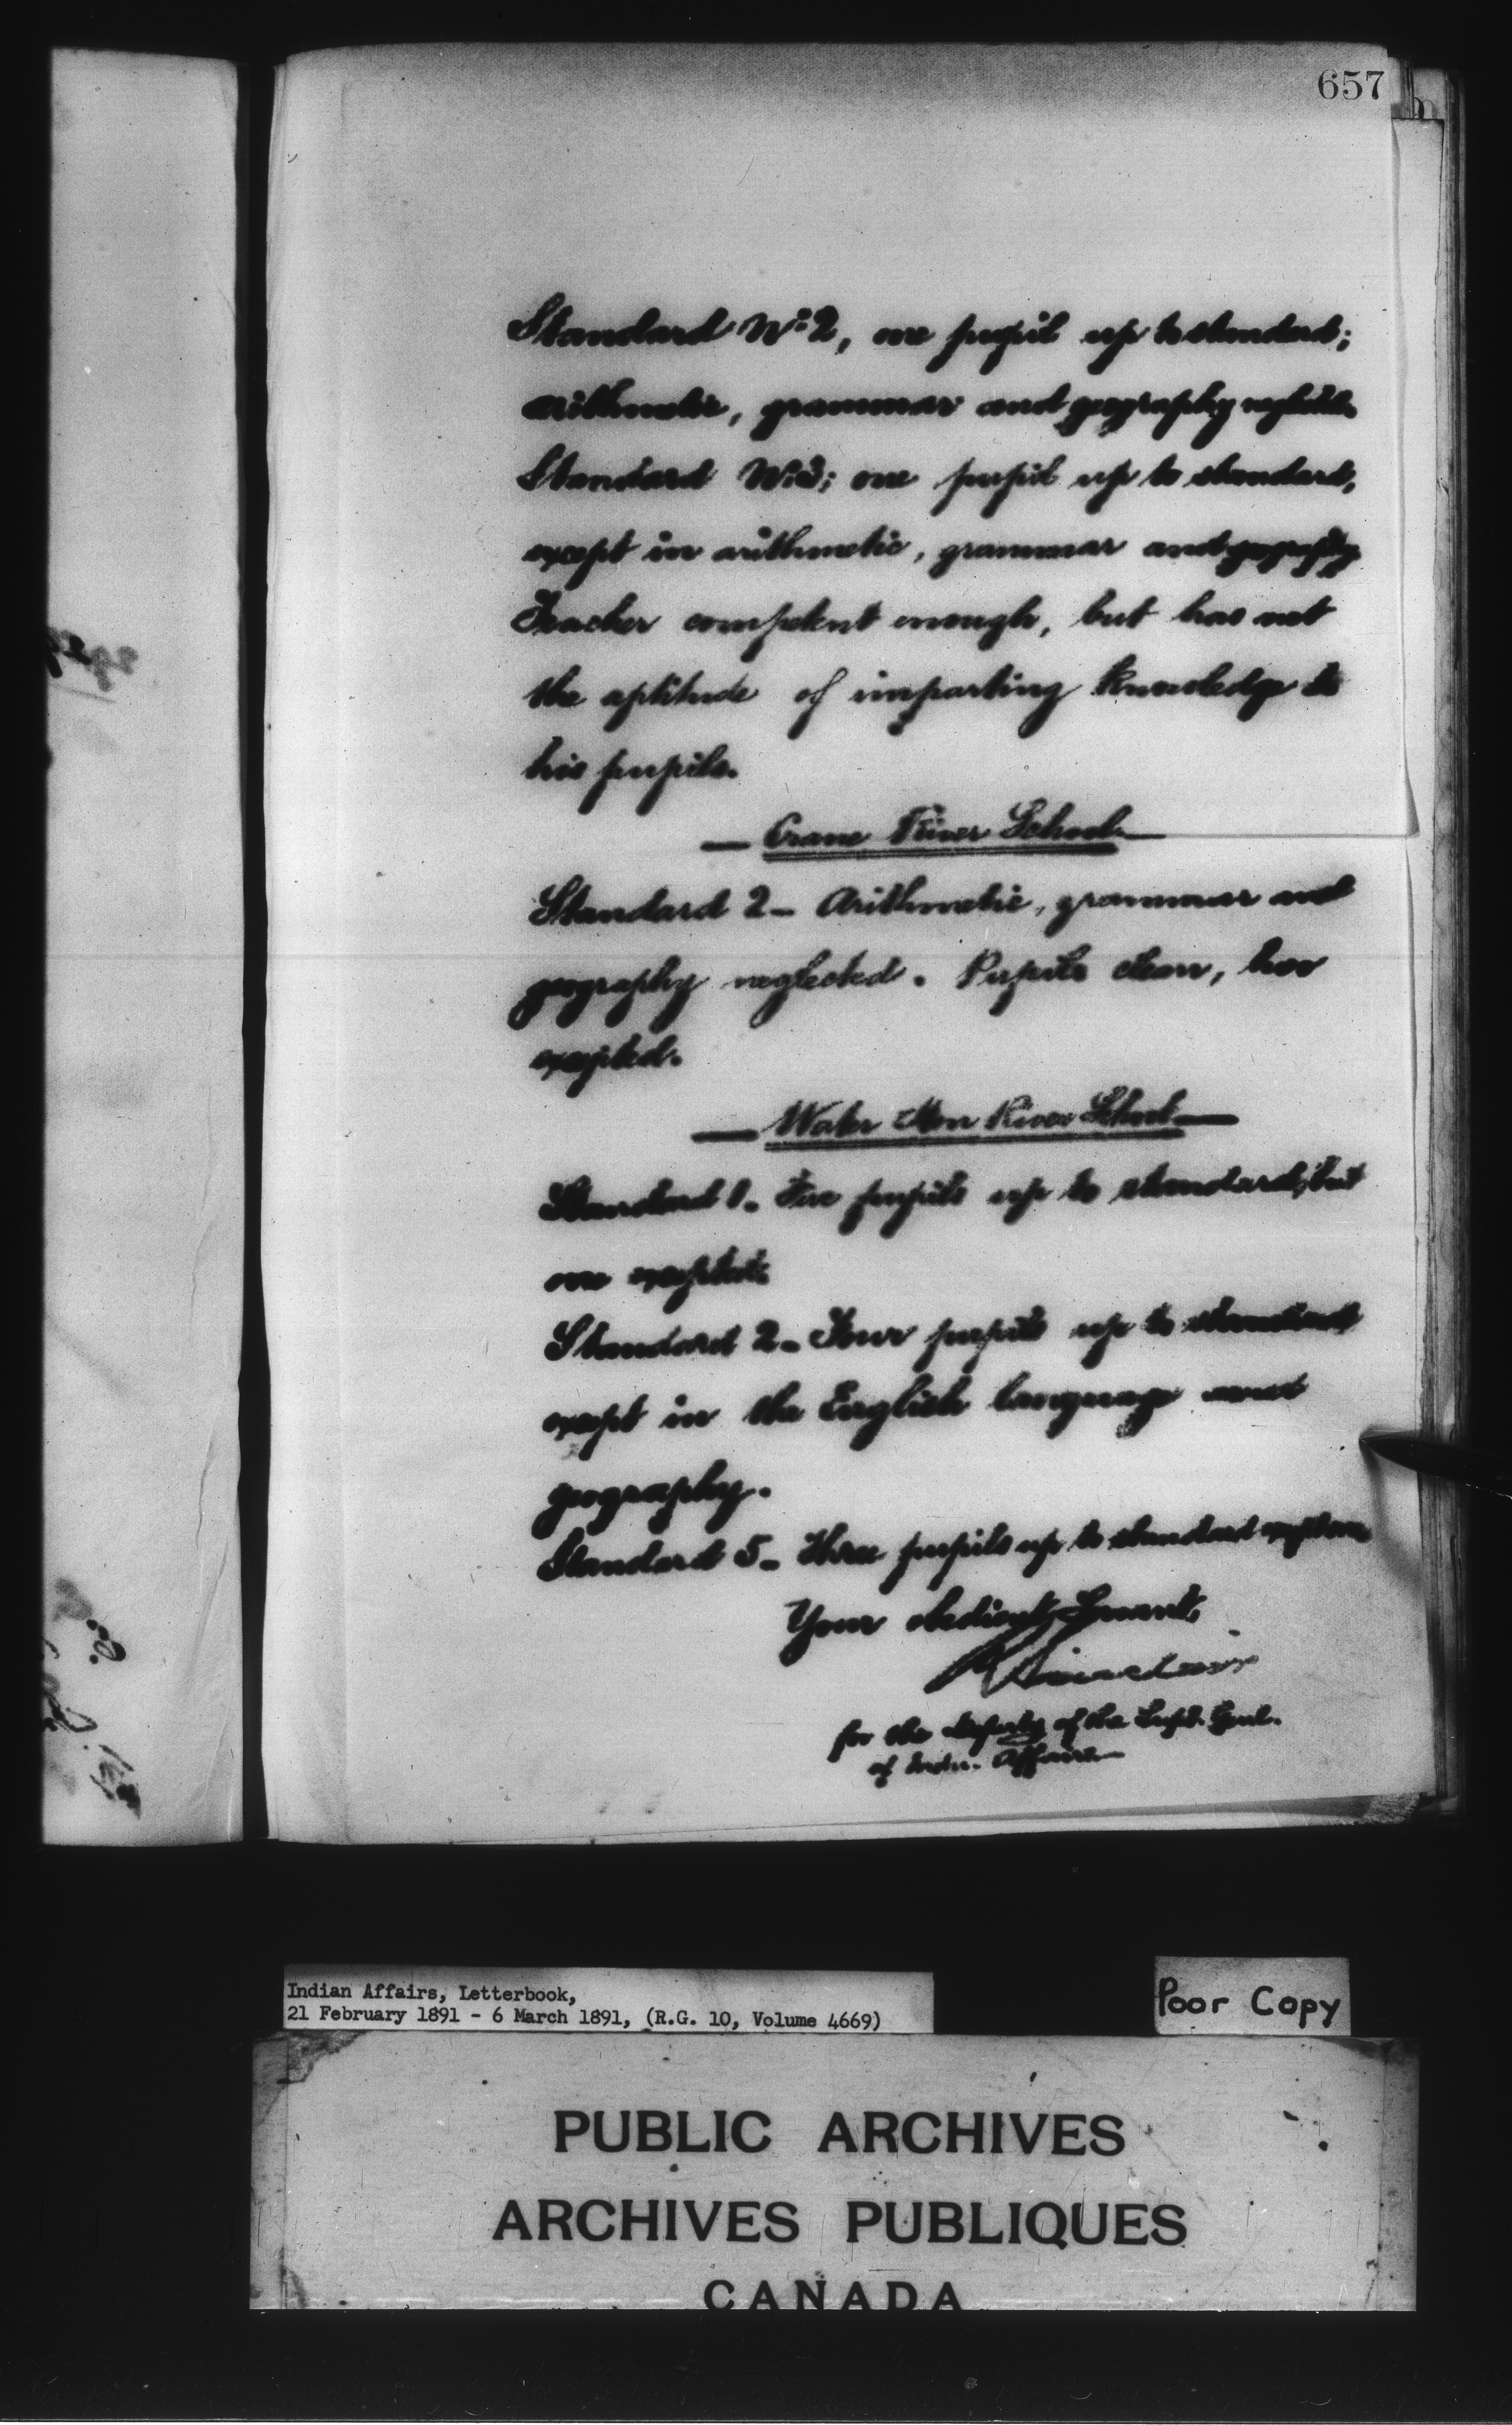 657
Standard No 2, one pupil up to standard;
arithmetic, grammar and geography neglected.
Standard No 3; one pupil up to standard,
except in arithmetic, grammar and geography
Teacher competent enough, but has not
the aptitude of imparting knowledge to
his pupils.
— Crane River School —
Standard 2 - Arithmetic, grammar and
geography neglected. Pupils clean, two
excepted.
— Water Hen River School —
Standard 1. Five pupils up to standard, but
one excepted.
Standard 2 - Four pupils up to standard
except in the English language and
geography.
Standard 5 - Three pupils up to standard
Your obedient Servant,
for the Deputy of the Supt. Genl.
of Indn. Affairs
Indian Affairs, Letterbook,
21 February 1891 - 6 March 1891, (R.G. 10, Volume 4669)
Poor Copy
PUBLIC ARCHIVES
ARCHIVES PUBLIQUES
CANADA